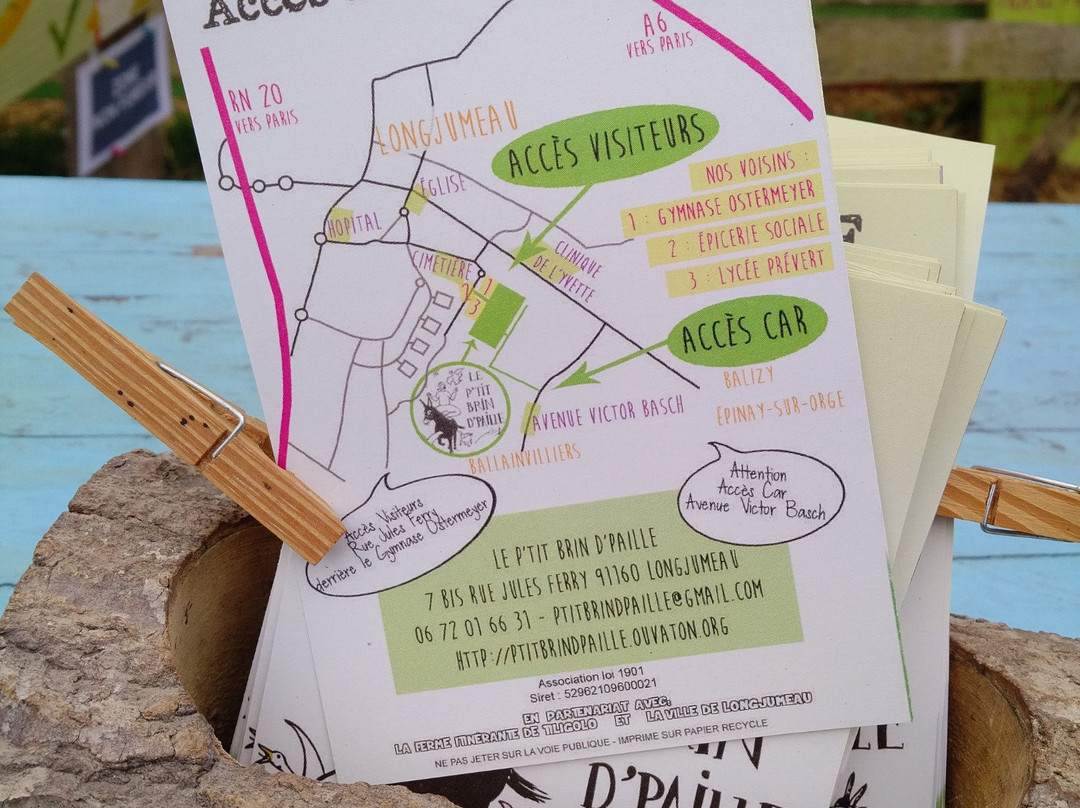 Accès
A6
VERS PARIS
RN 20
VERS PARIS
LONGJUMEAU
ACCÈS VISITEURS
NOS VOISINS :
1 : GYMNASE OSTERMEYER
2 : ÉPICERIE SOCIALE
3 : LYCÉE PRÉVERT
ÉGLISE
HOPITAL
CIMETIÈRE
CLINIQUE
DE L'YVETTE
1
2
3
ACCÈS CAR
BALIZY
EPINAY-SUR-ORGE
LE
P'TIT
BRIN
D'PAILLE
AVENUE VICTOR BASCH
BALLAINVILLIERS
Accès Visiteurs
Rue Jules Ferry
derrière le Gymnase Ostermeyer
Attention
Accès Car
Avenue Victor Basch
LE P'TIT BRIN D'PAILLE
7 BIS RUE JULES FERRY 91160 LONGJUMEAU
06 72 01 66 31 - PTITBRINDPAILLE@GMAIL.COM
HTTP://PTITBRINDPAILLE.OUVATON.ORG
Association loi 1901
Siret : 52962109600021
EN PARTENARIAT AVEC:
LA FERME ITINERANTE DE TILIGOLO ET LA VILLE DE LONGJUMEAU
NE PAS JETER SUR LA VOIE PUBLIQUE - IMPRIME SUR PAPIER RECYCLE
D'PAILLE